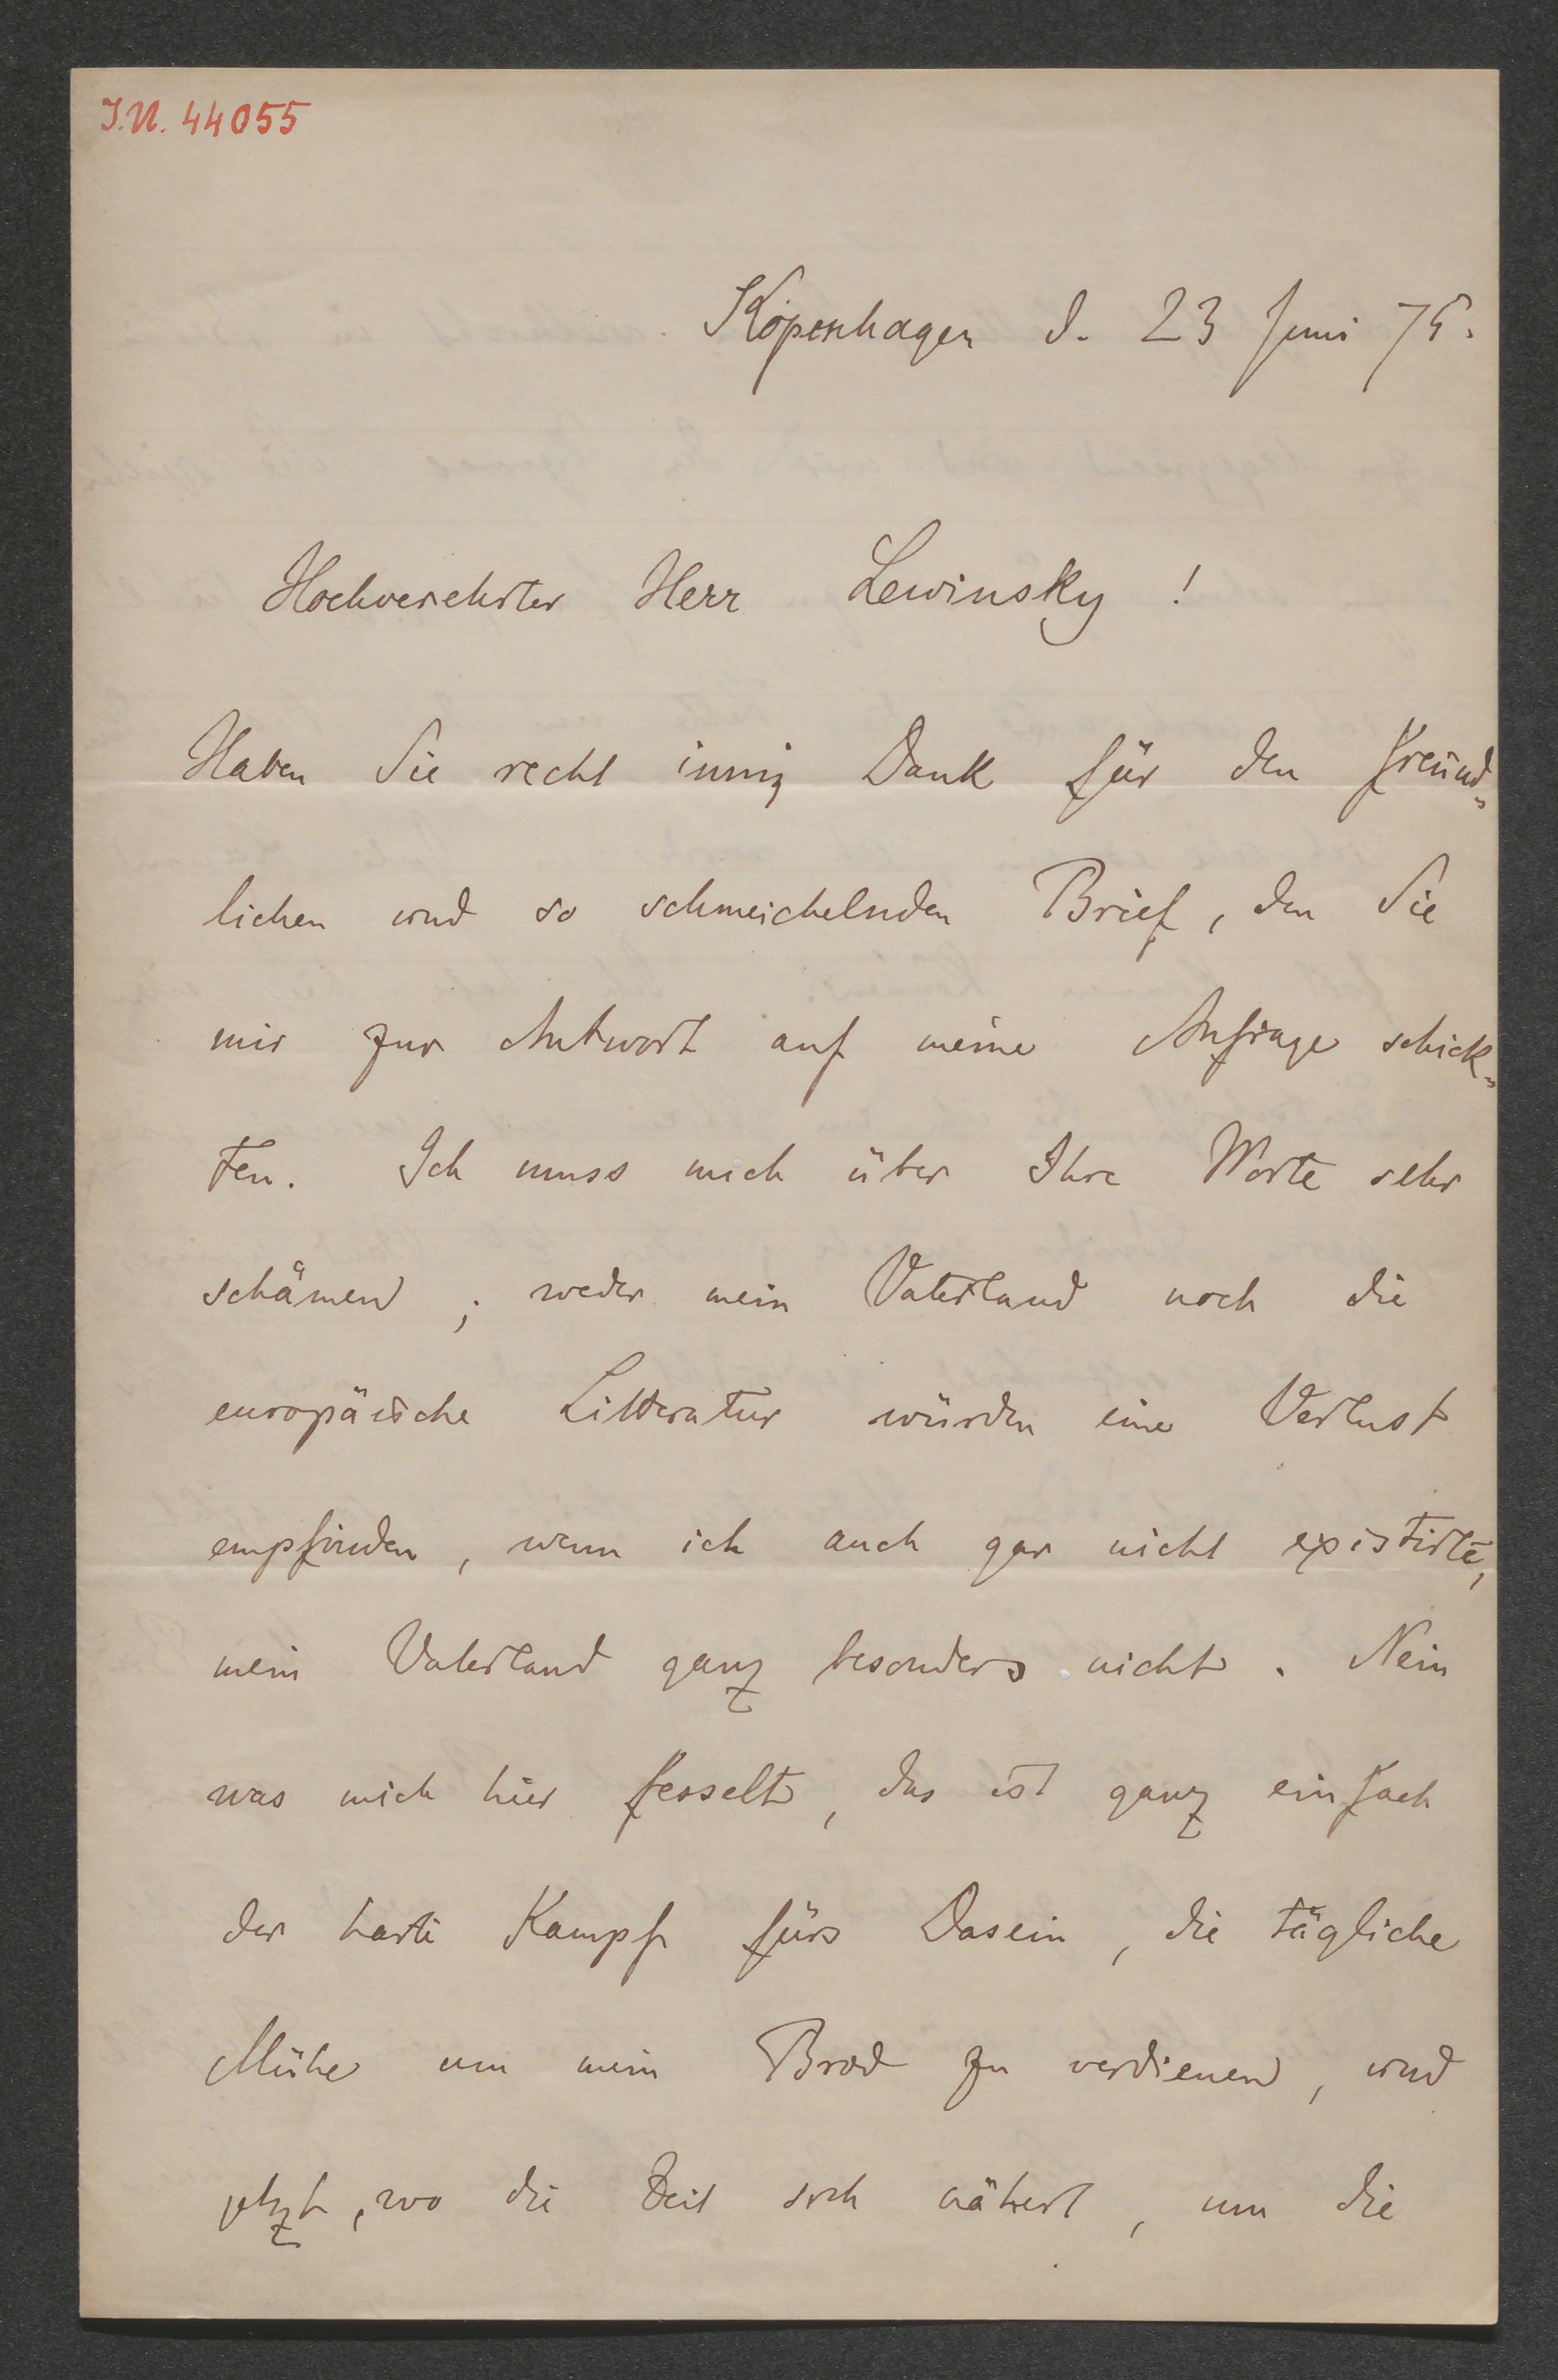 J.N. 44055
Kopenhagen d. 23 Juni 75.
Hochverehrter Herr Lewinsky!
Haben Sie recht innig Dank für den freund„
lichen und so schmeichelnden Brief, den Sie
mir zur Antwort auf meine Anfrage schick„
ten. Ich muss mich über Ihre Worte sehr
schämen; weder mein Vaterland noch die
europäische Litteratur würden eine Verlust
empfinden, wenn ich auch gar nicht existirte,
mein Vaterland ganz besonders nicht. Nein
was mich hier fesselt, das ist ganz einfach
der harte Kampf fürs Dasein, die tägliche
Mühe um mein Brod zu verdienen, und
jetzt, wo die Zeit sich nähert, um die